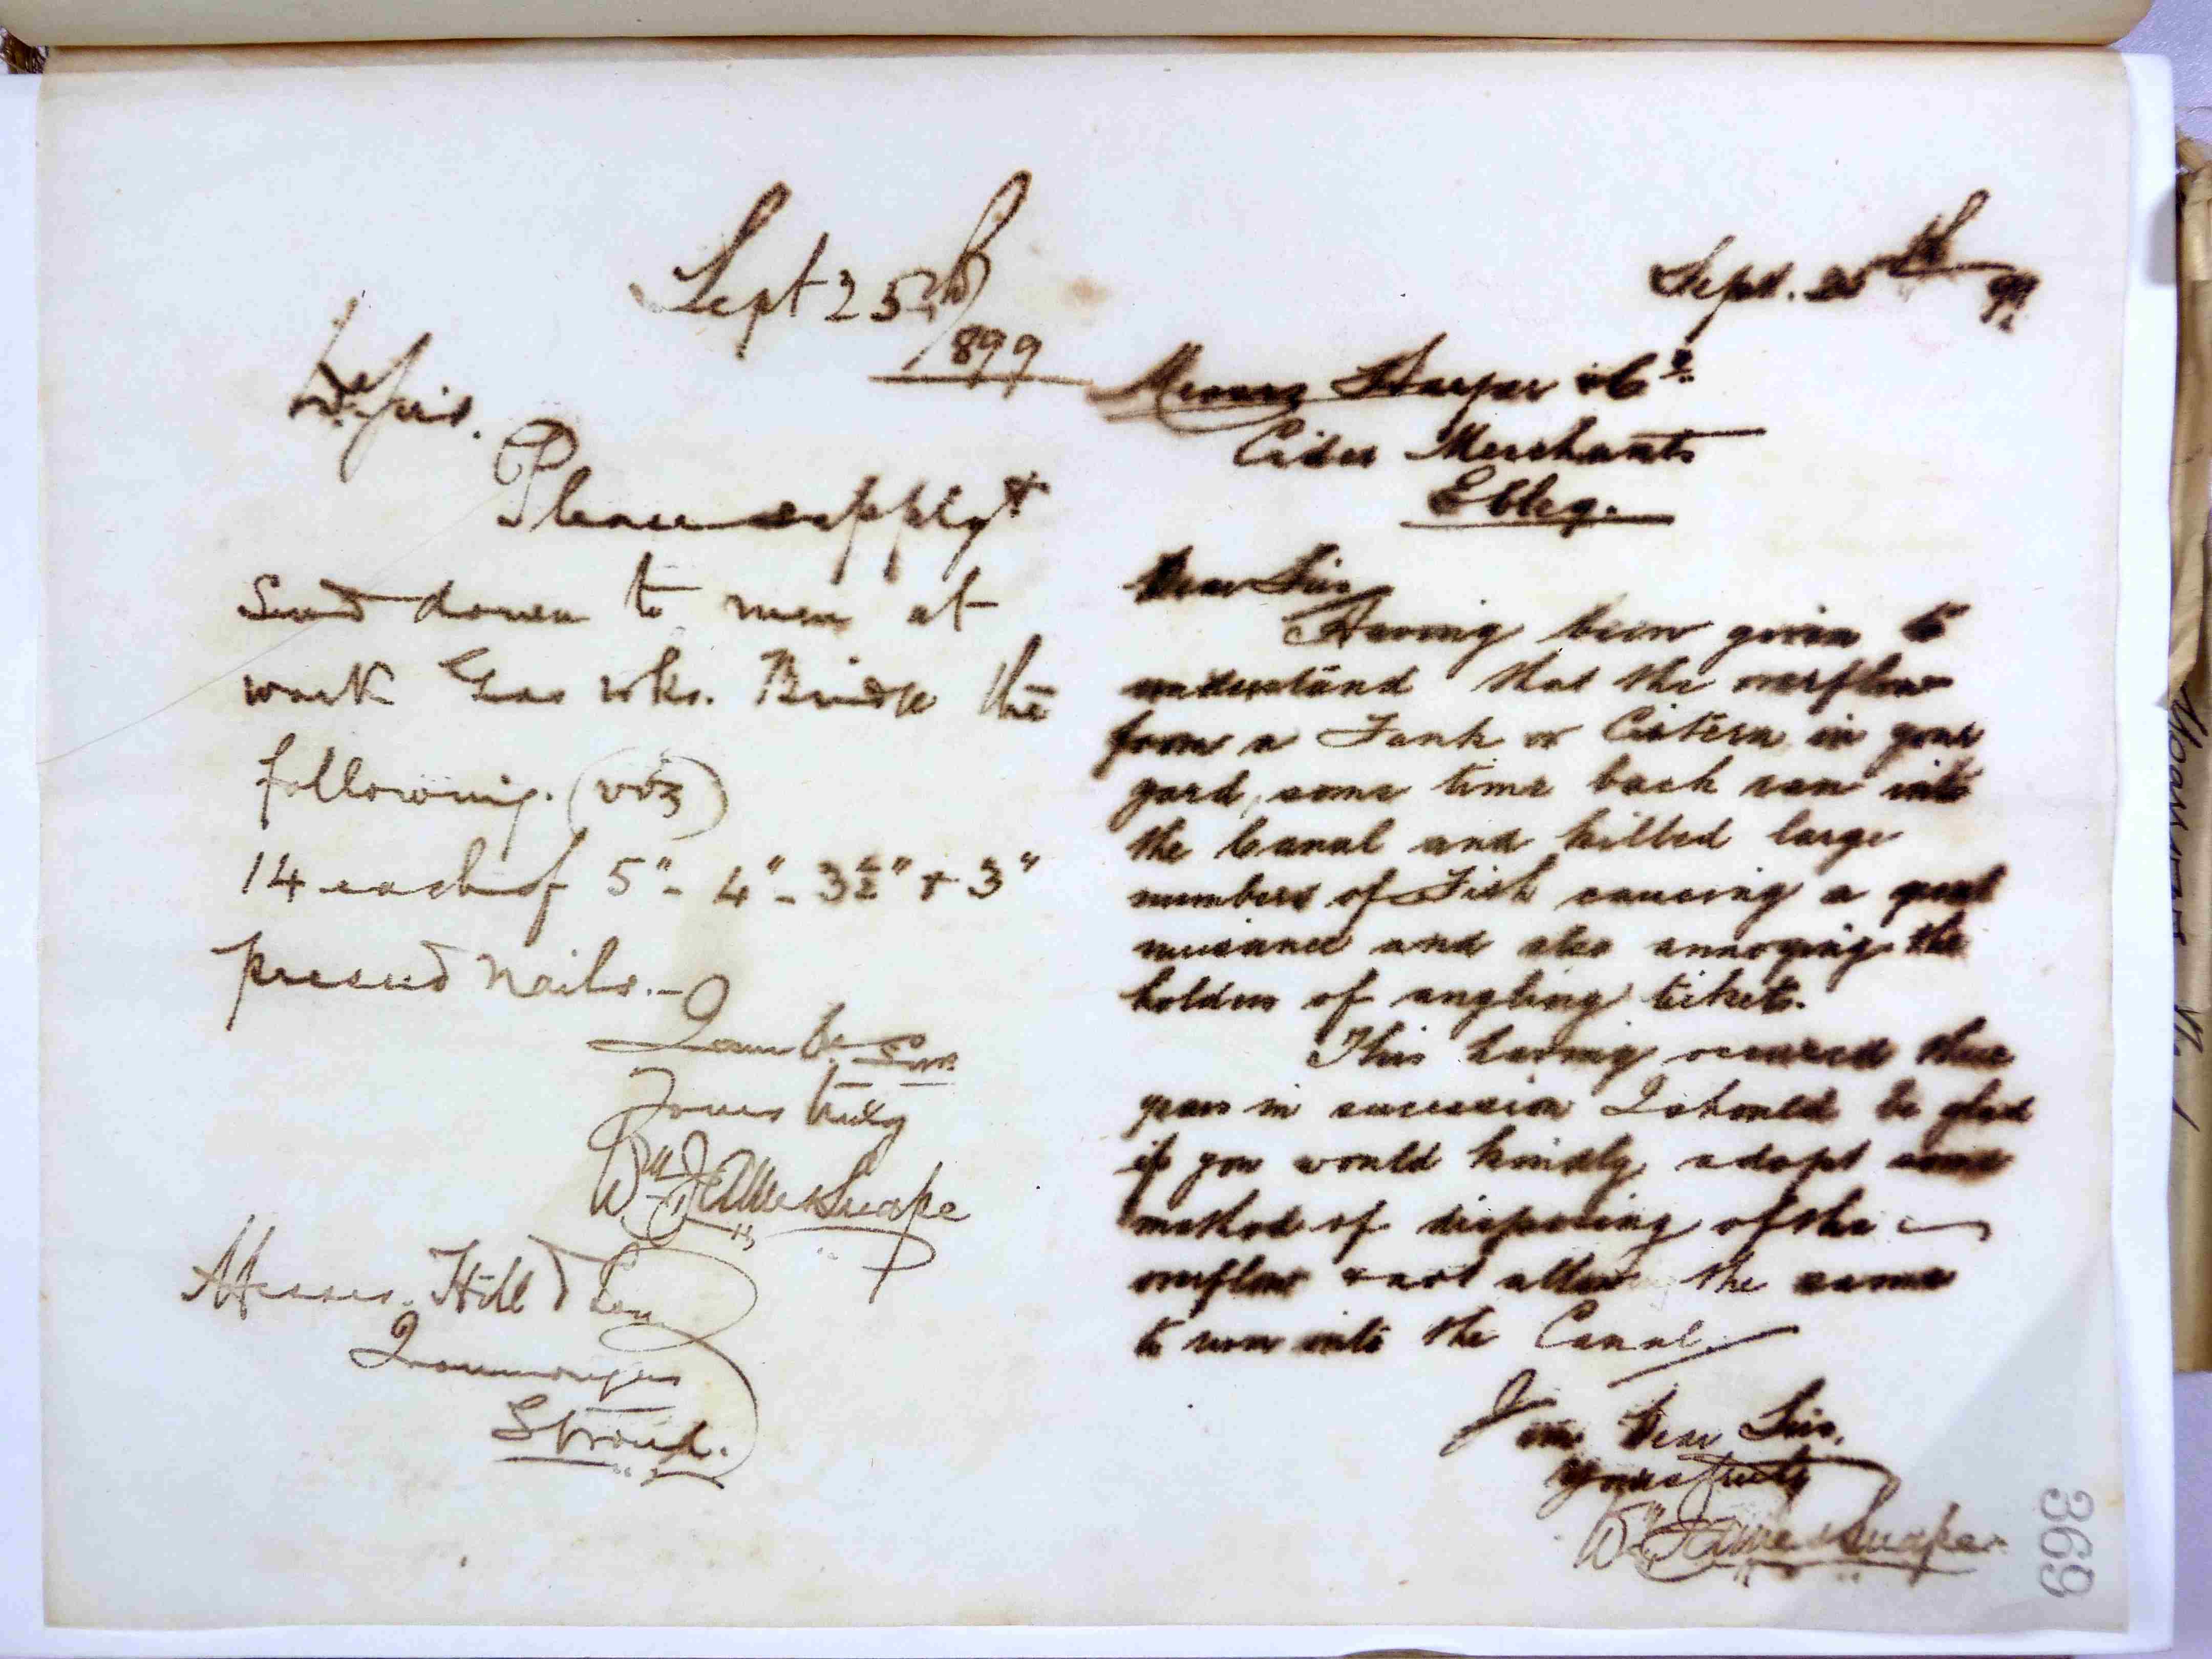 Sept 25th
1899
Dr Sirs.
Please supply &
send down to men at
work Gas wks. Bridge the
following. (viz)
14 each of 5" - 4" - 3½" & 3"
pressed nails. -
I am Dr Sirs
Yours truly
Messrs. Hill & Son
Ironmongers
Stroud.
Sept. 25th 99
Messrs Harper & Co
Cider Merchants
Ebley.
Dear Sirs
Having been given to
understand that the overflow
from a Tank or Cistern in your
yard, some time back ran into
the Canal and killed large
numbers of Fish causing a great
nuisance and also annoying the
holders of angling tickets.
This having occured three
years in succession I should be glad
if you would kindly adopt some
method of disposing of the
overflow & not allow the same
to run into the Canal.
I am Dear Sirs,
Yours truly
369